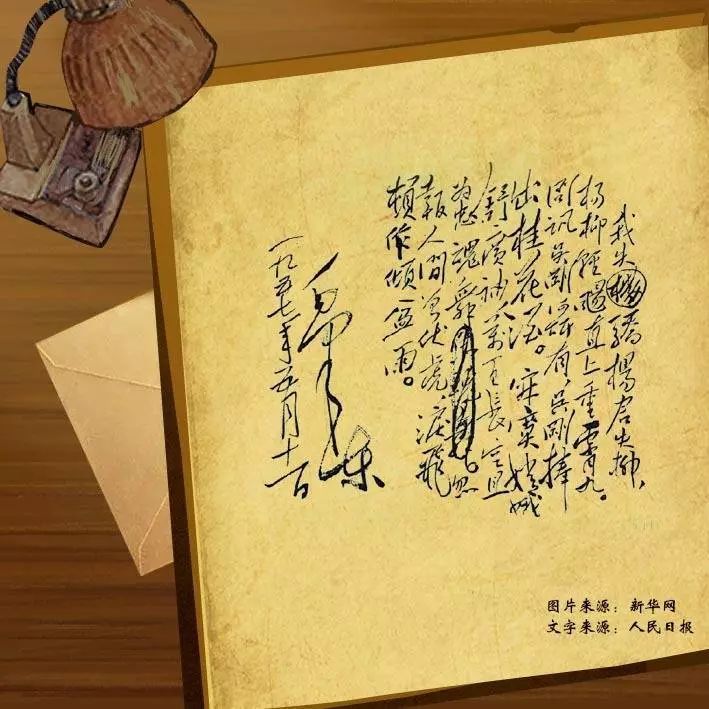 我失骄楊君失柳，
杨柳輕颺直上重霄九。
问讯吴剛何所有，吴刚捧
出桂花酒。寂寞嫦娥
舒廣袖，萬里長空且
為忠魂舞。忽
報人間曾伏虎，淚飛
頓作傾盆雨。
毛泽东
一九五七年五月十一日
图片来源：新华网
文字来源：人民日报